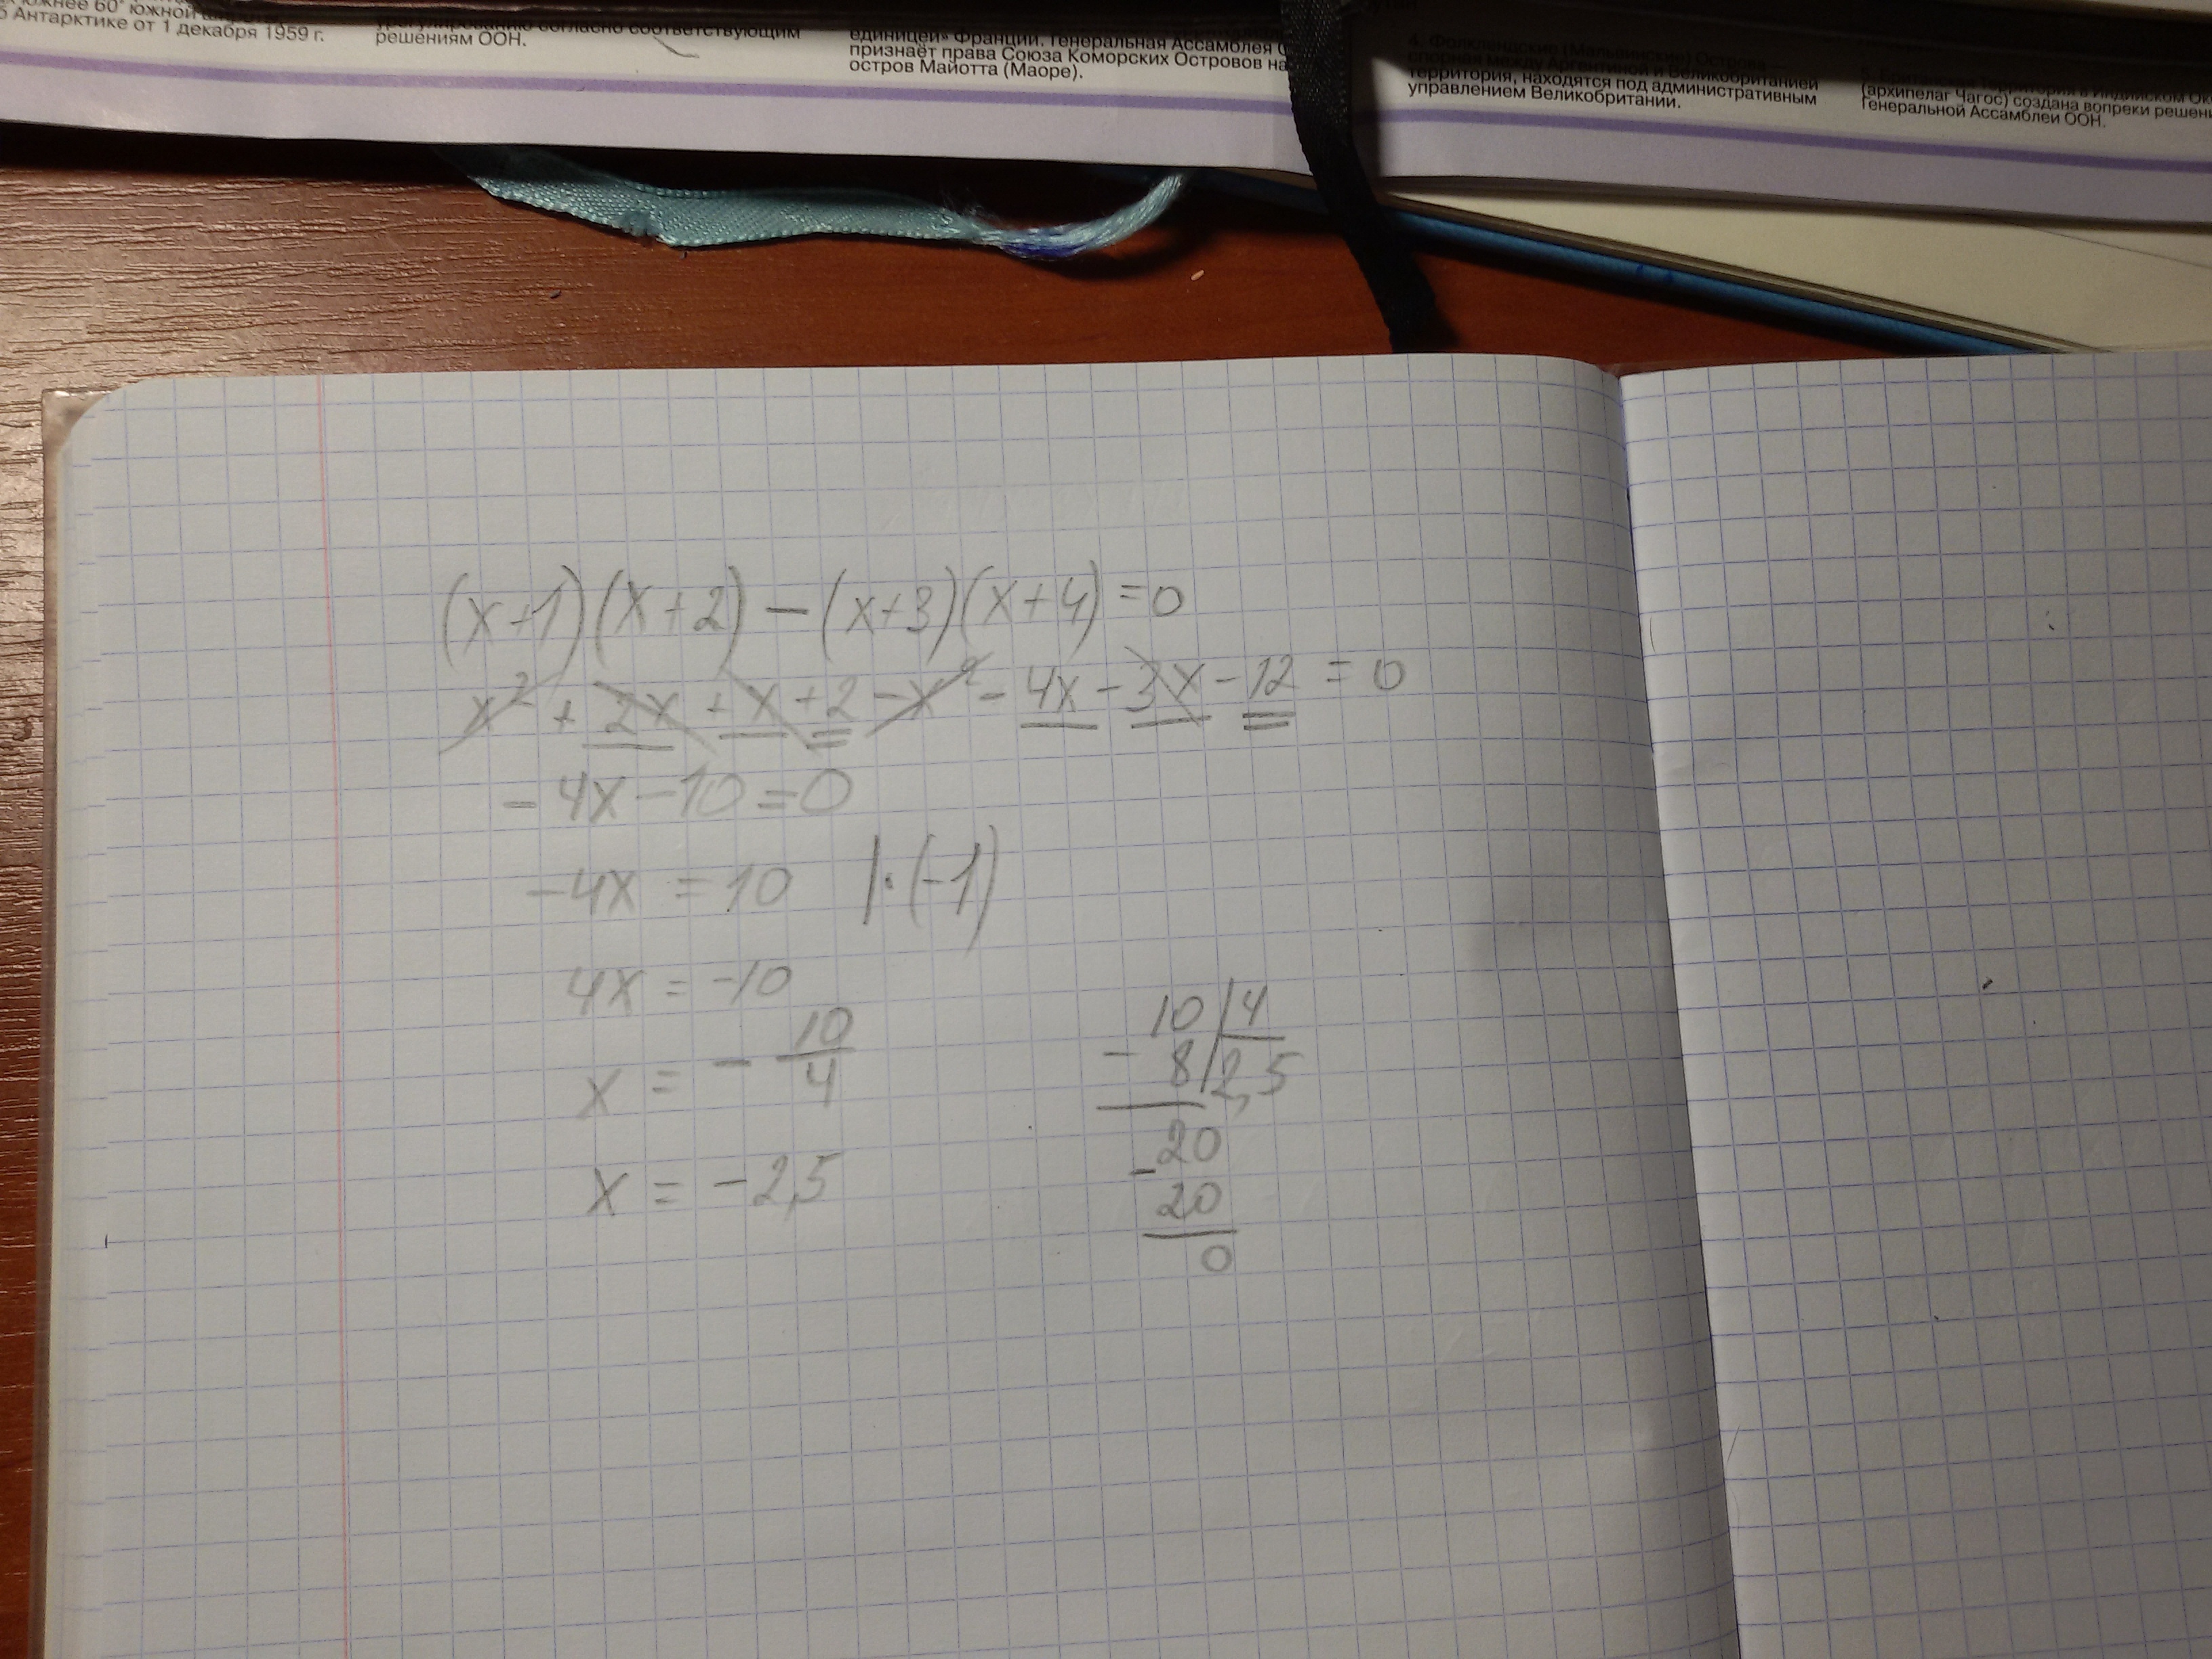 южнее 60° южной
б Антарктике от 1 декабря 1959 г.
урегулированию согласно соответствующим
решениям ООН.
единицей» Франции. Генеральная Ассамблея
признаёт права Союза Коморских Островов на
остров Майотта (Маоре).
4. Фолклендские (Мальвинские) Острова —
спорная между Аргентиной и Великобританией
территория, находятся под административным
управлением Великобритании.
5. Британская Территория в Индийском
(архипелаг Чагос) создана вопреки
Генеральной Ассамблеи ООН.
(x+1)(x+2)-(x+3)(x+4)=0
x²+2x+x+2-x²-4x-3x-12=0
-4x-10=0
-4x=10 |·(-1)
4x=-10
x=-10/4
x=-2,5
10|4
-8|2,5
20
-20
0